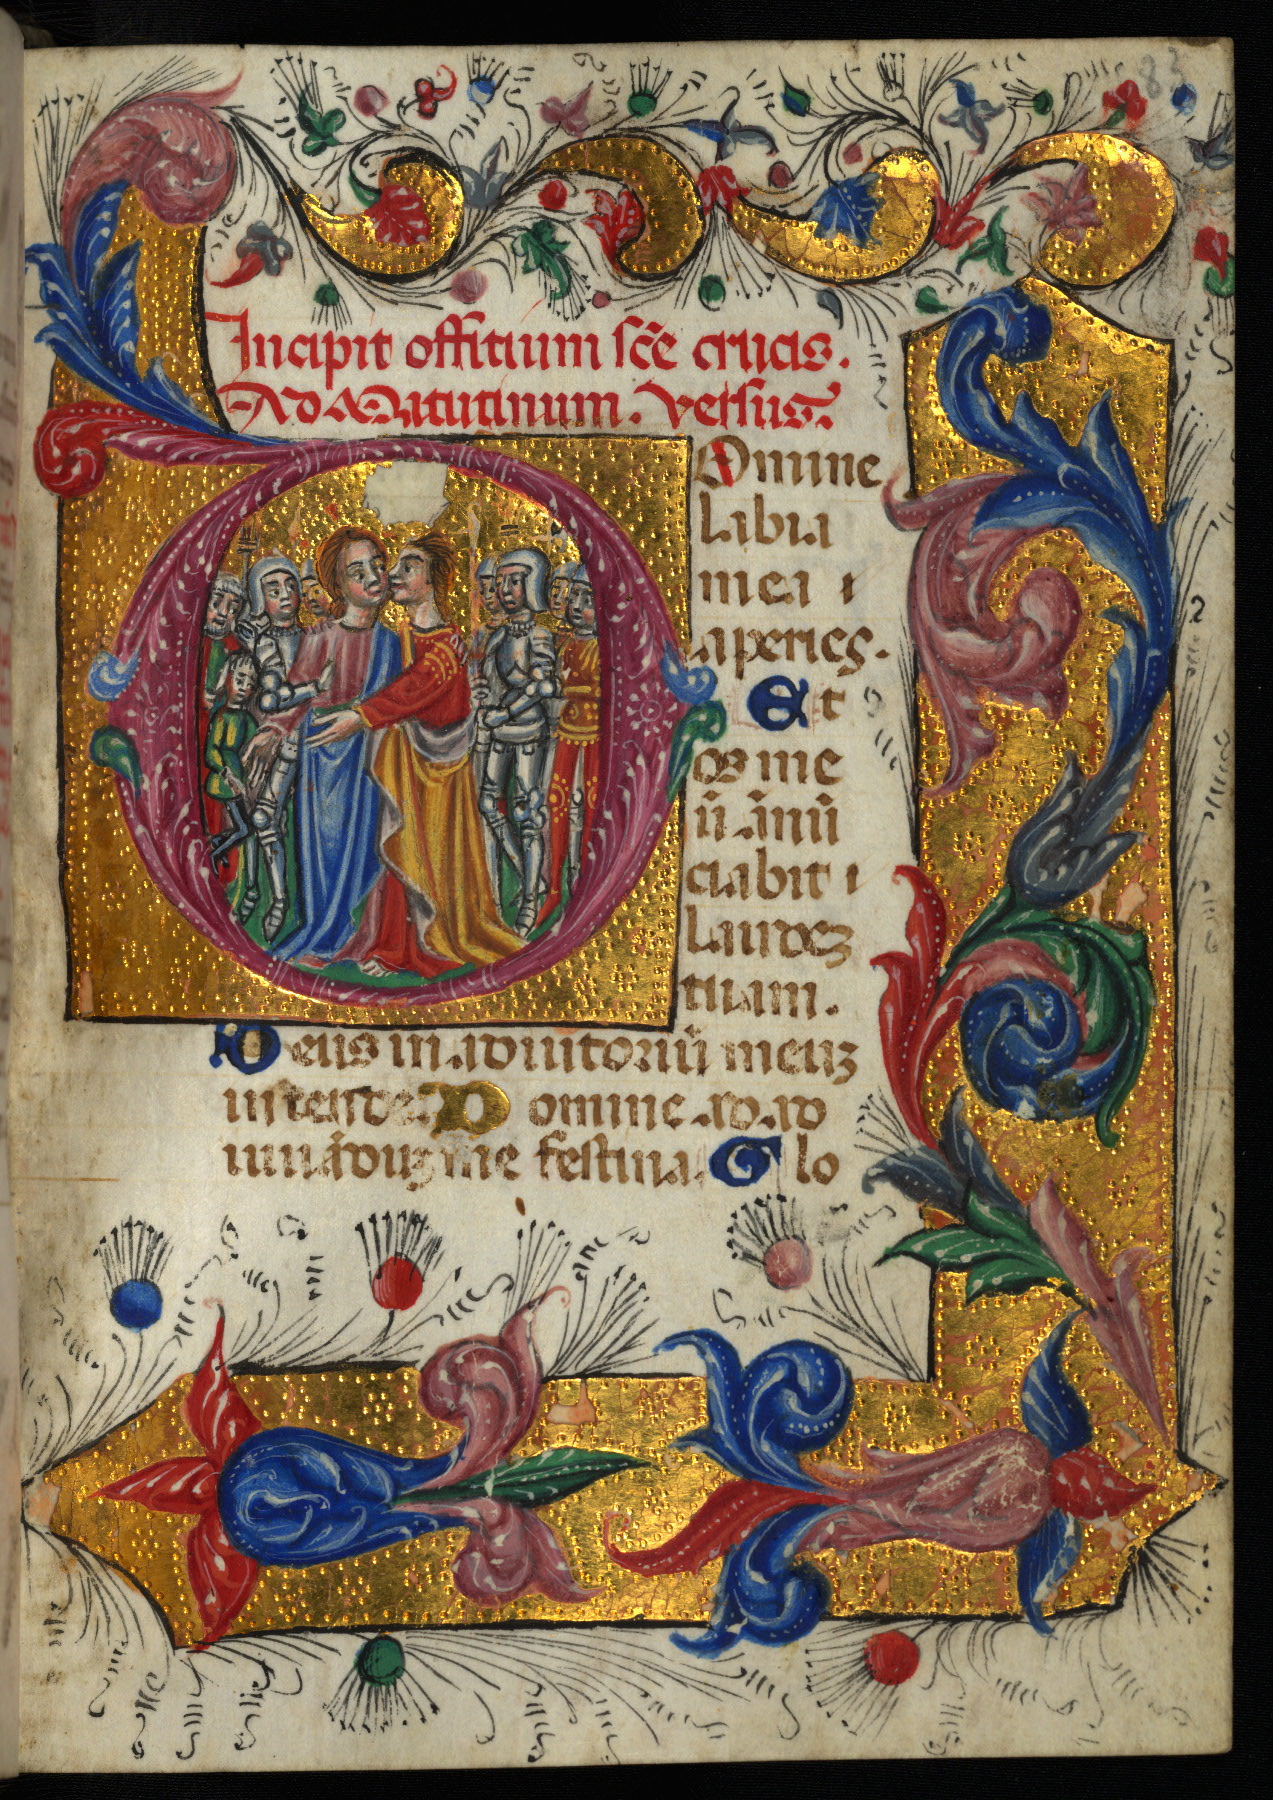 83
Incipit offitium sc̄e crucis.
Ad Matutinum. versus.
Domine
labia
mea
aperies.
Et
os me
ū ānnū
ciabit
laudeʒ
tuam.
Deus in adiutoriū meuʒ
intende. Domine ad ad
iuuāduʒ me festina. Glo